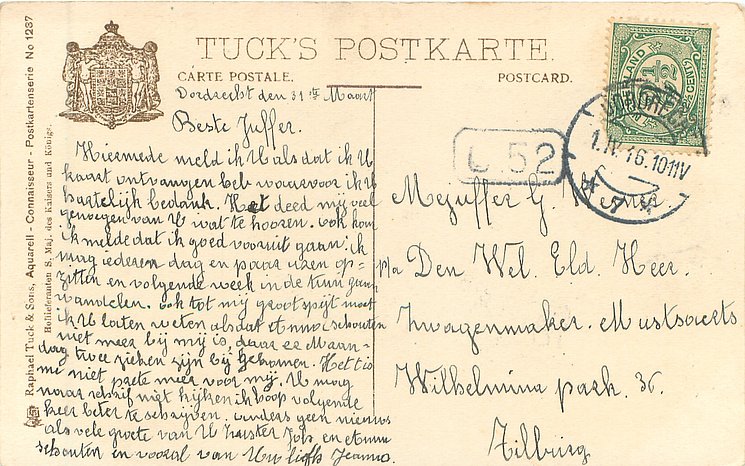 TUCK'S POSTKARTE.
CARTE POSTALE.
POSTCARD.
Raphael Tuck & Sons, Aquarell - Connaisseur - Postkartenserie No 1237
Hoflieferanten S. Maj. des Kaisers und Königs.
Dordrecht den 31ste Maart
Beste Juffer.
Hiermede meld ik U als dat ik U
kaart ontvangen heb waarvoor ik U
hartelijk bedank. Het deed mij veel
genoegen van U wat te hooren. ook kan
ik melde dat ik goed vooruit gaan. ik
mag iederen dag en paar uren op-
zitten en volgende week in de tuin gaan
wandelen. ook tot mij groot spijt moet
ik U laten weten als dat
niet meer bij mij is, daar er Maan-
dag twee zieken zijn bij gekomen. Het is
me niet meer voor mij. U mag
naar schrif niet kijken ik hoop volgende
keer beter te schrijven. anders geen nieuws
als vele groete van U Zuster Joh en
schouten en vooral van Uw liefh Jeanne.
U 52
NEDERLAND
2½ CENT
DORDRECHT
1.IV.16.10-11V
Mejuffer G.
p/a Den Wel. Eld. Heer.
Zwagenmaker. Mustsaerts
Wilhelmina park. 36.
Tilburg